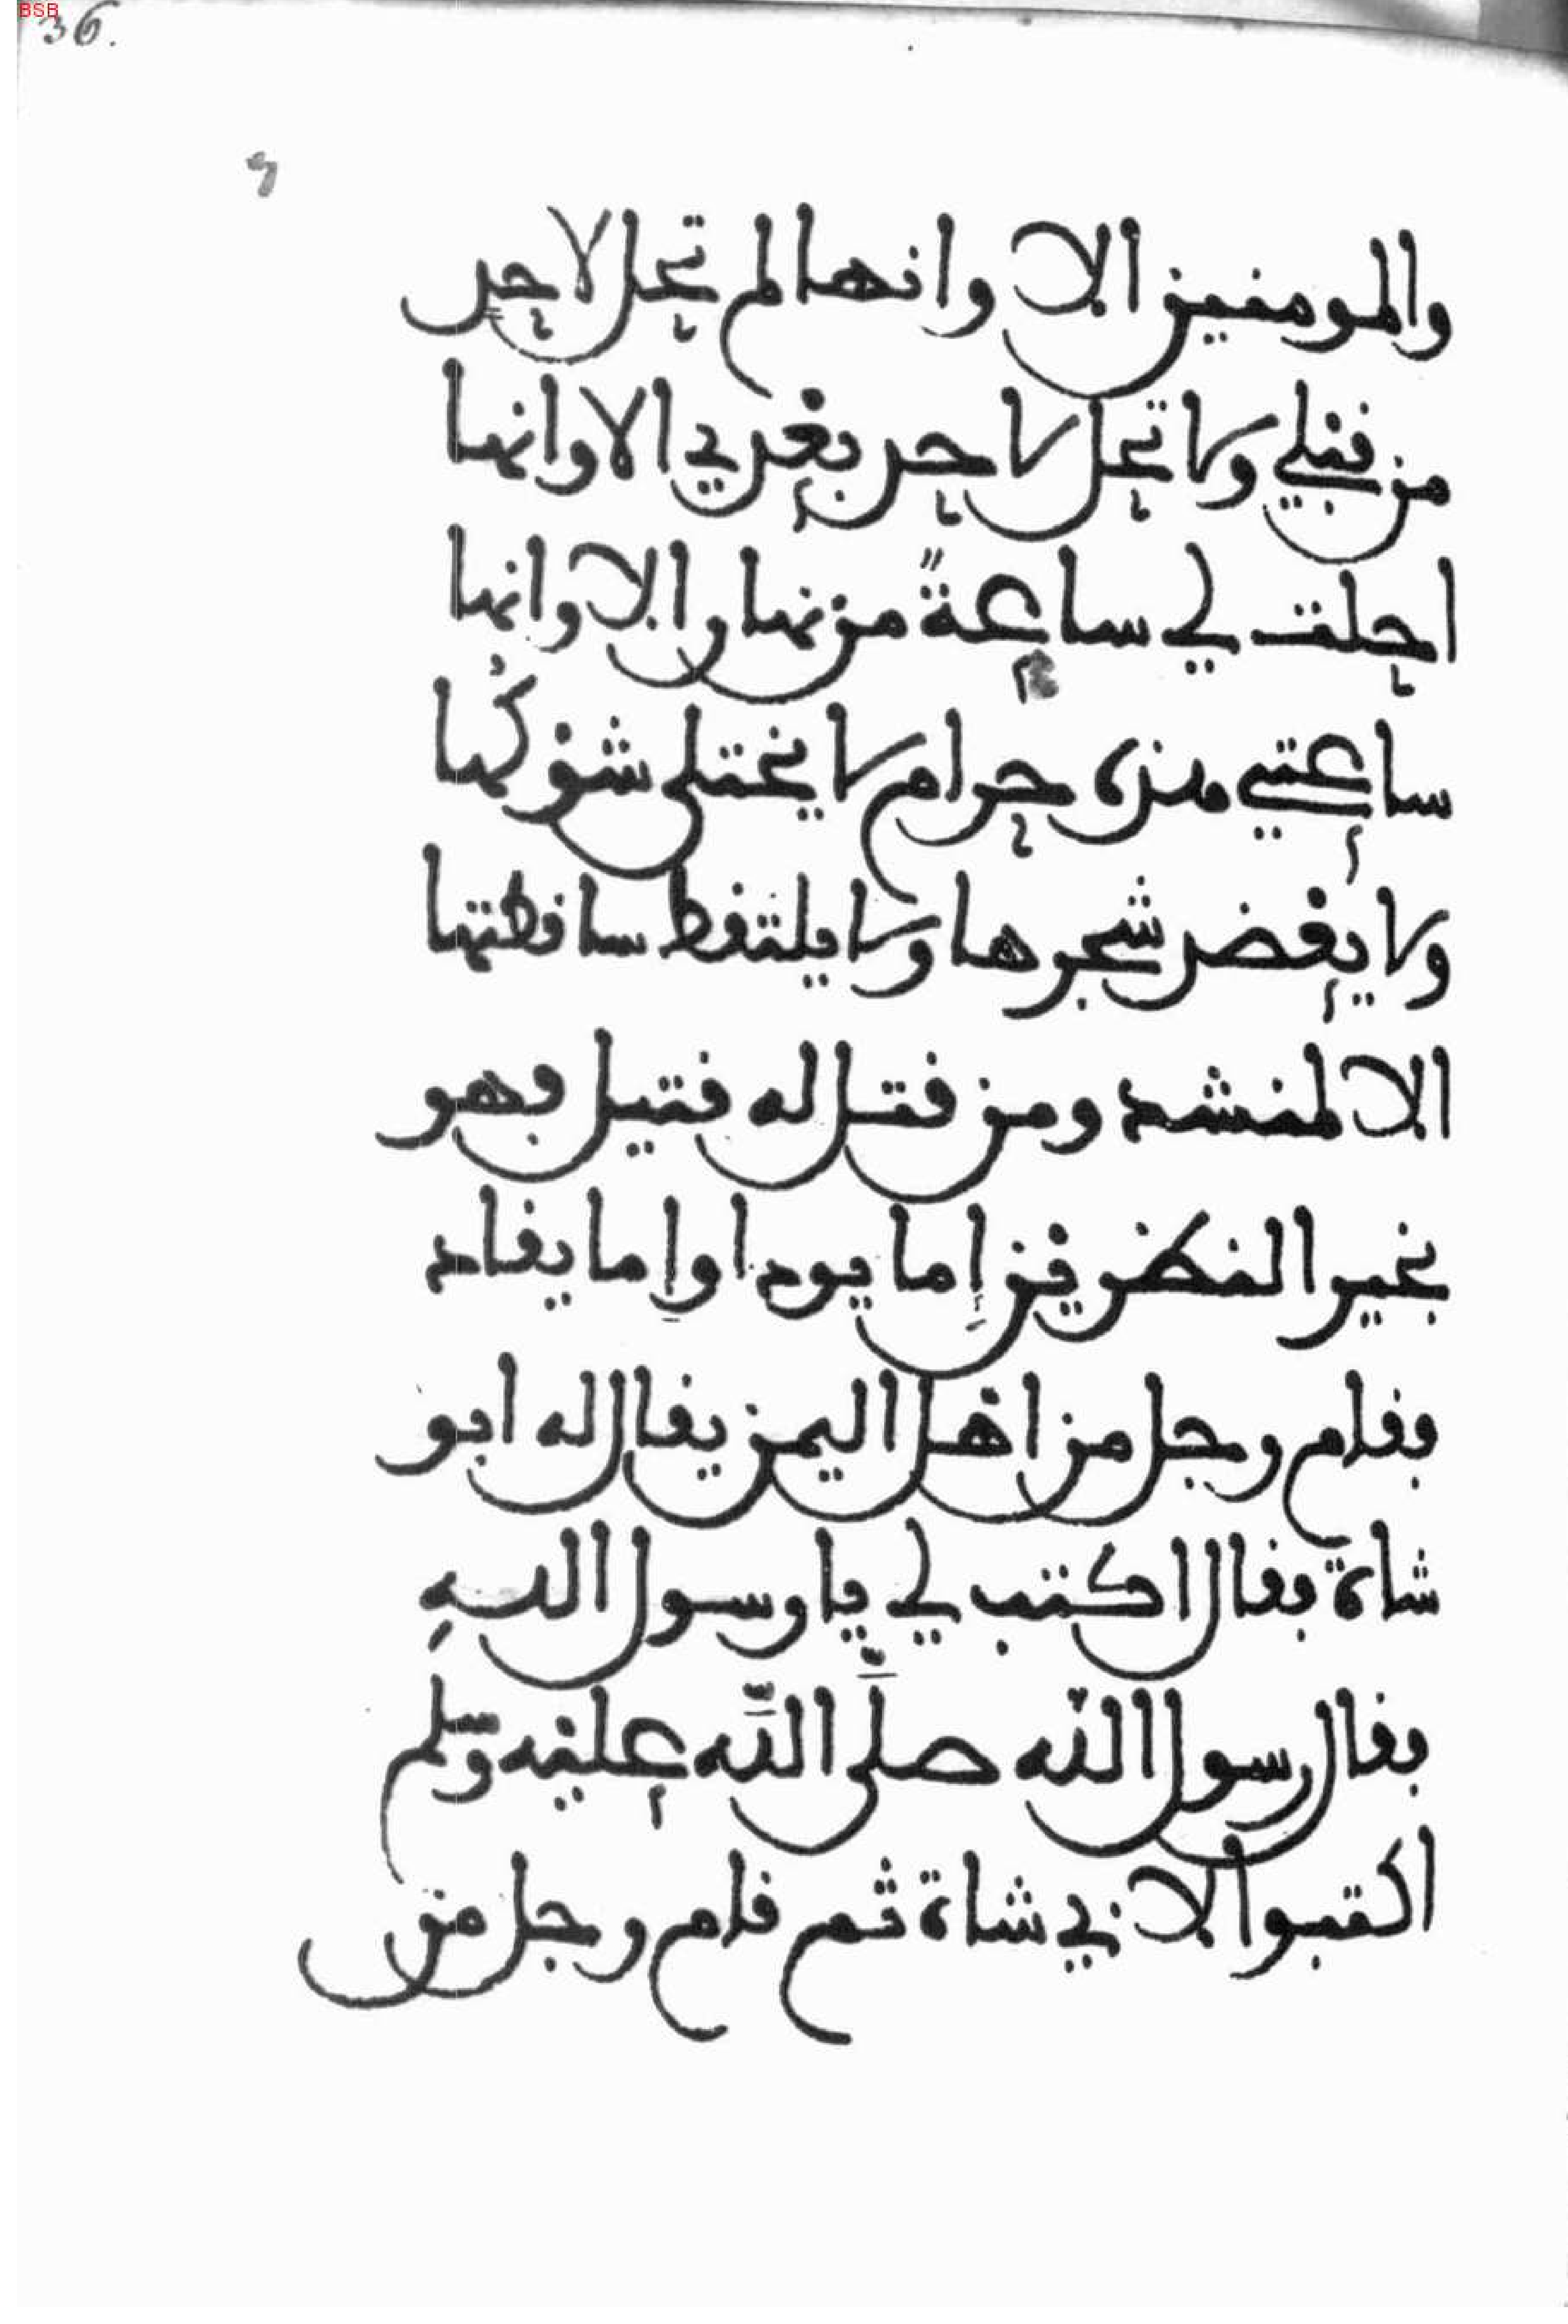 BSB
36.
والمومنين الا وانها لم تحل لاحد
من قبلي ولا تحل لاحد بعدي الا وانها
احلت لي ساعة من نهار الا وانها
ساعتي هذه حرام لا يختلى شوكها
ولا يعضد شجرها ولا يلتقط ساقطتها
الا لمنشد ومن قتل له قتيل فهو
بخير النظرين اما يودا واما يقاد
فقام رجل من اهل اليمن يقال له ابو
شاة فقال اكتب لي يا رسول اللهِ
فقال رسول الله صلَّى اللَّه عليه وسّلم
اكتبوا لابي شاة ثم قام رجل من